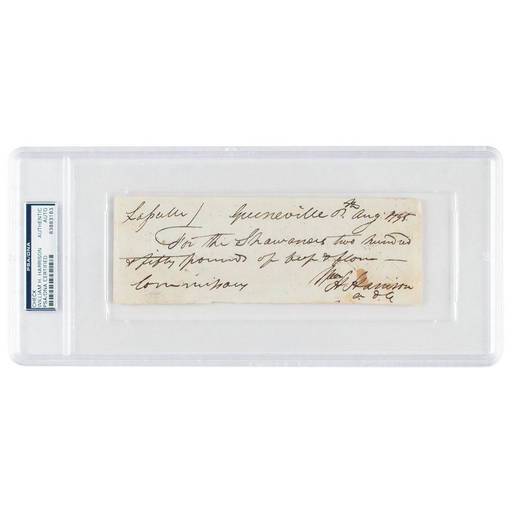 Greeneville Augt 1795
For the Shawanees two hundred
& fifty pounds of beef & flour —
Commissary
Wm H Harrison
a d C
CHECK
WILLIAM H. HARRISON
PSA/DNA CERTIFIED
AUTHENTIC
AUTO
83883163
PSA/DNA